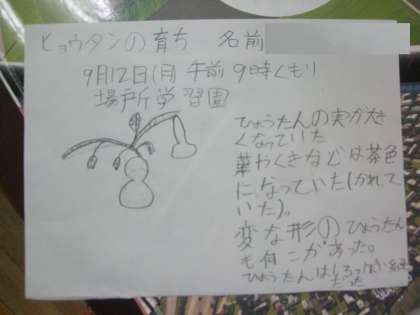 ヒョウタンの育ち 名前
9月12日(月)午前9時くもり
場所学習園
ひょうたんの実が大き
くなっていた
葉やくきなどは茶色
になっていた(かれて
いた)。
変な形のひょうたん
も何こかあった。
ひょうたんはしろっぽい緑
だった